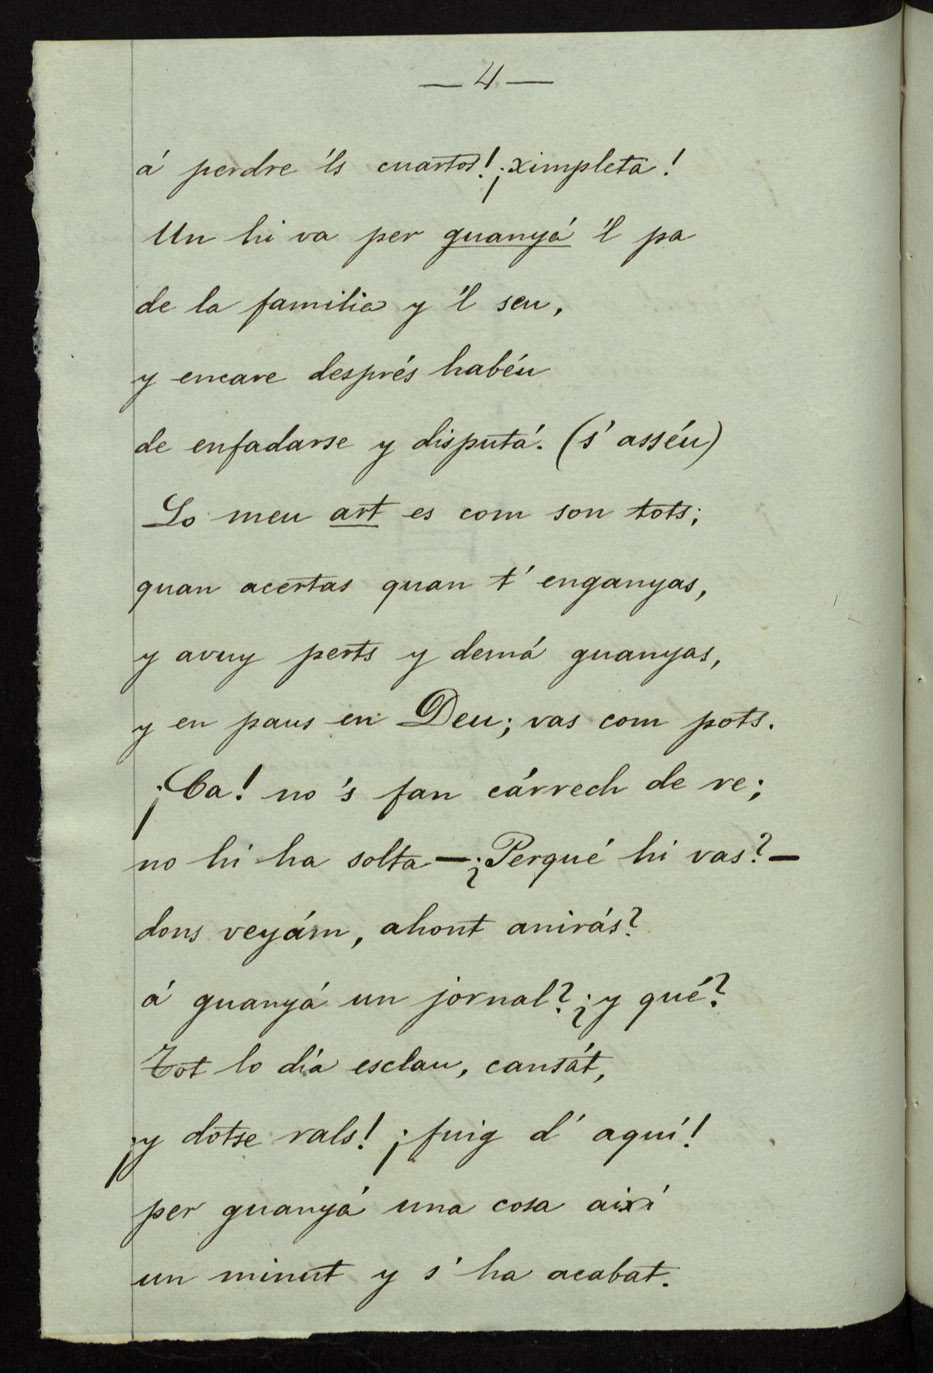 — 4 —
á perdre 'ls cuartos! ¡ximpleta!
Un hi va per guanyá 'l pa
de la familia y 'l seu,
y encare després habéu
de enfadarse y disputá. (s' asséu)
Lo meu art es com son tots;
quan acertas quan t' enganyas,
y avuy perts y demá guanyas,
y en paus en Deu; vas com pots.
¡Ca! no 's fan cárrech de re;
no hi ha solta — ¿Perqué hi vas? —
dons veyám, ahont anirás?
á guanyá un jornal? ¿y qué?
Tot lo día esclau, cansát,
¡y dotse rals! ¡fuig d' aquí!
per guanyá una cosa aixi
un minut y s' ha acabat.